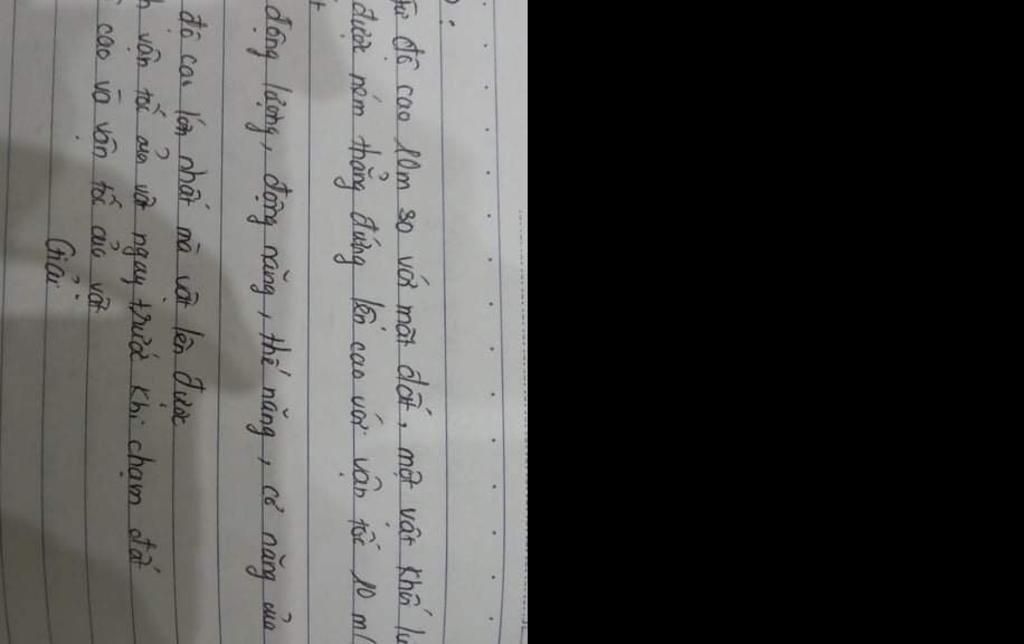 Từ độ cao 10m so với mặt đất, một vật khối lư
được ném thẳng đứng lên cao với vận tốc 10 m/
động lượng, động năng, thế năng, cơ năng của
độ cao lớn nhất mà vật lên được
h vận tốc của vật ngay trước khi chạm đất
cao và vận tốc của vật
Giải: